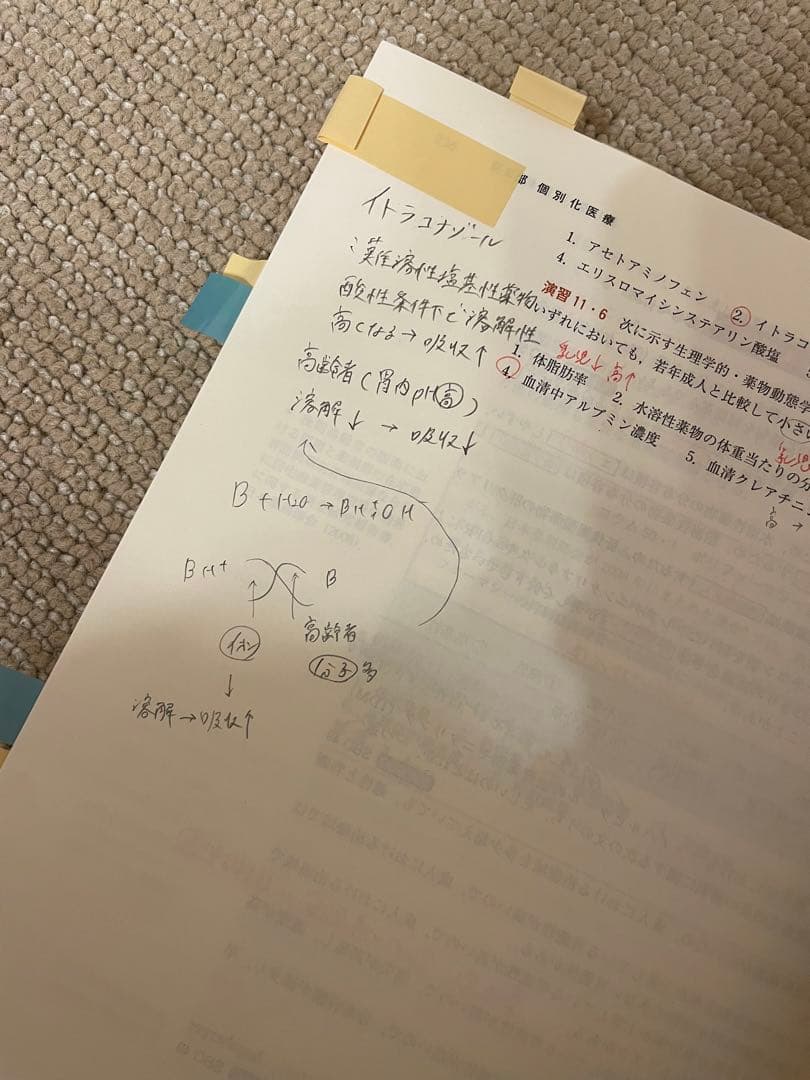 部 個別化医療
1. アセトアミノフェン
2. イトラコ
4. エリスロマイシンステアリン酸塩
演習 11・6 次に示す生理学的・薬物動態学
いずれにおいても，若年成人と比較して小さい
1. 体脂肪率
2. 水溶性薬物の体重当たりの分
4. 血清中アルブミン濃度
5. 血清クレアチニン
乳児↓ 高↑
乳児
高→
イトラコナゾール
難溶性塩基性薬物
酸性条件下で溶解性
高くなる→吸収↑
高齢者(胃内pH高)
溶解↓ → 吸収↓
B + H2O → BH+ OH
BH+ B
イオン
高齢者
分子多
↓
溶解→吸収↑